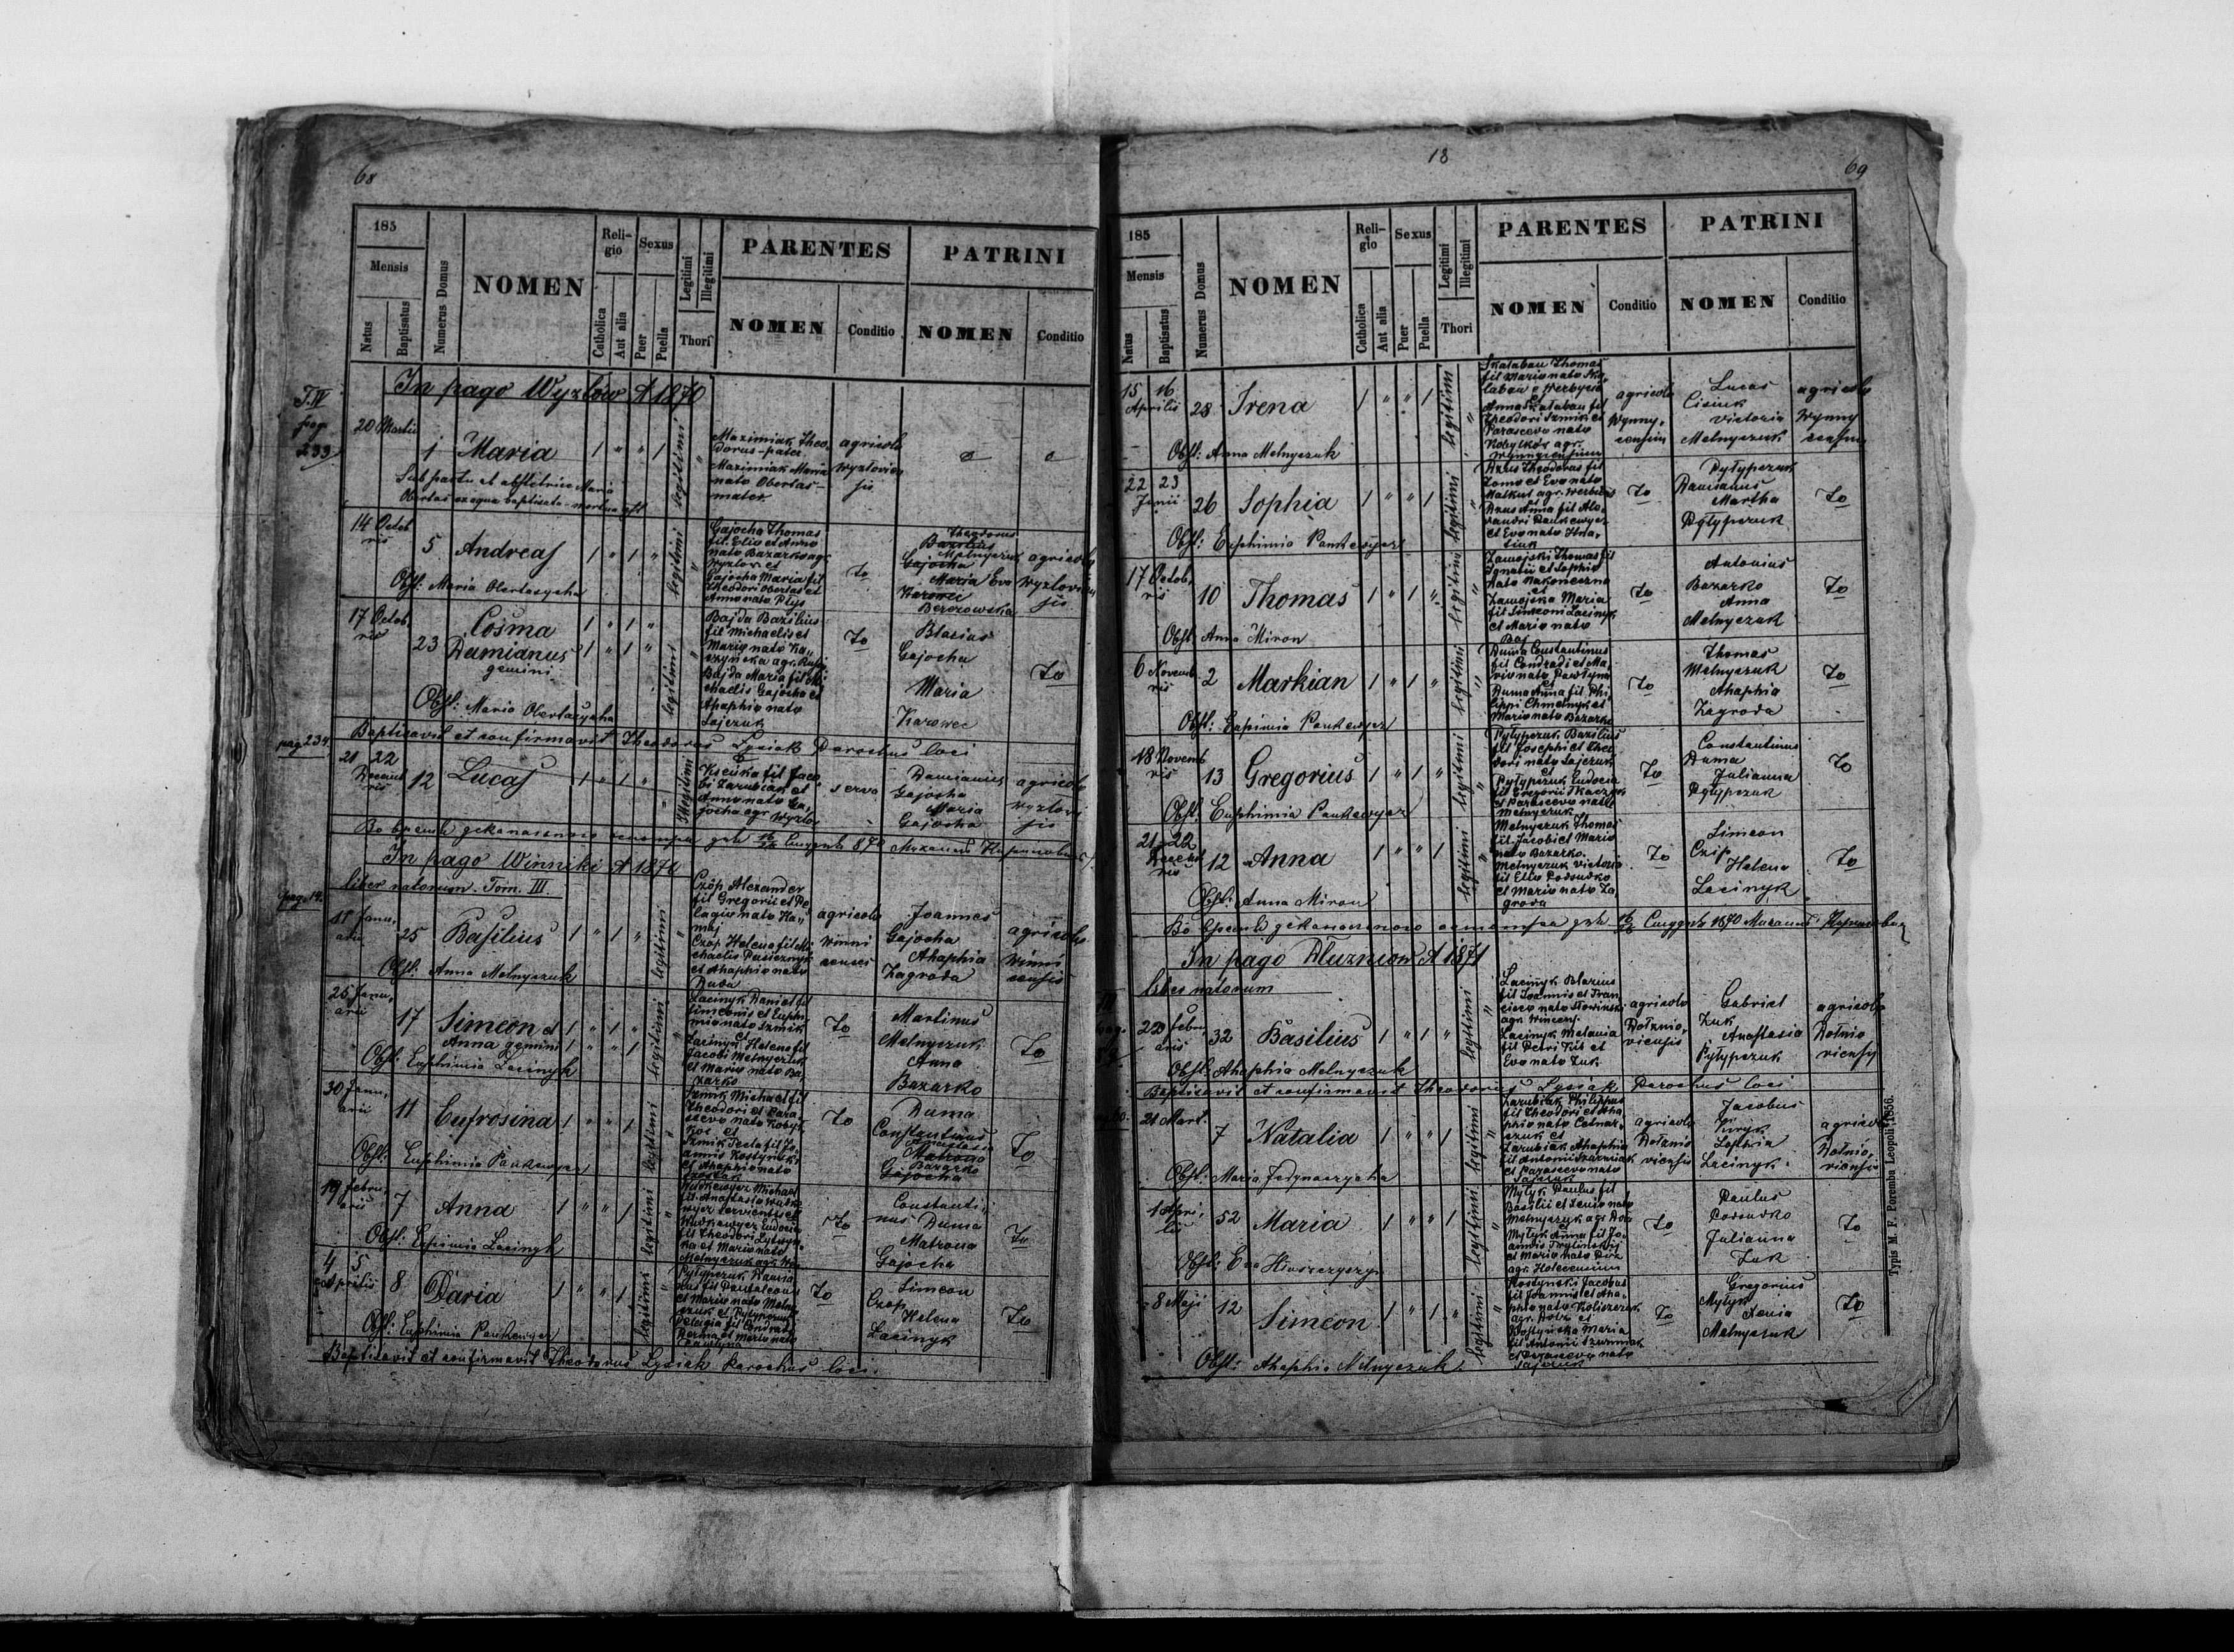 68
185
Mensis
Natus
Baptisatus
Numerus Domus
NOMEN
Religio
Catholica
Aut alia
Sexus
Puer
Puella
Legitimi
Illegitimi
Thori
PARENTES
NOMEN
Conditio
PATRINI
NOMEN
Conditio
In pago Wyzłow A 1870
T. IV
pag.
233
20 Martii
1 Maria 1 " " 1 legitimi
Maximiak Theo-
dorus - pater
Maximiak Maria
nata Obertas -
mater
agricola
Wyzłovien
sis
Sub partu et obstetrice Maria
Obertas ex aqua baptisata - mortua est
14 Octob
ris
5 Andreas 1 " 1 " legitimi
Gajocha Thomas
fil. Elio et Anna
nata Bazarko agr.
Wyzłow et
Gajocha Maria fil
Theodori Obertas et
Anna nata Płys
To
Theodorus
Basilius
Melnyczuk
Gajocha
Maria Eva
Karowec
Berezowska
agricola
Wyzlovien
sis
Obst: Maria Obertasycha
17 Octob,
ris
23 Cosma 1 " 1 "
Damianus 1 " 1 "
gemini
legitimi
Bajda Bazilius
fil Michaelis et
Maria nata Ka,,
Bajda Maria fil Mi
chaelis Gajocha et
Ahaphia nata
Sajczuk
To
Blasius
Gajocha
Maria
Karowec
To
Obst: Maria Obertasycha
Baptisavit et confirmavit Theodorus Lysiak Parochus loci
pag 234
21 22
Decemb
ris
12 Lucas 1 " 1 " Illegitimi
Kseńka fil Jaco
bi Zarubiak et
Anna nata Ga,
jocha agr Wyzłov
serva
Damianus
Gajocha
Maria
Gajocha
agricola
Wyzlovi
sis
In pago Winniki A 1870
liber natorum. Tom. III
pag. 14.
11 Janu,
arii
25 Basilius 1 " 1 " legitimi
Czóp Alexander
fil Gregorii et Pe
lagia nata Ha,
maj
Czop Helena fil Mi
chaelis Pasicznyk
et Ahaphia nata
Duda
agricola
Winni
censes
Joannes
Gajocha
Ahaphia
Zagroda
agricola
Winni
censis
Obst: Anna Melnyczuk
25 Janu,
arii
17 Simeon et 1 " 1 "
Anna gemini 1 " " 1
legitimi
Lacinyk Daniel fil
Simeonis et Euphi
mia nata Szmik
Lacinyk Helena fil
Jacobi Melnyczuk
et Maria nata Ba
zarko
To
Martinus
Melnyczuk
Anna
Bazarko
To
Obst: Euphimia Lacinyk
30 Janu,
arii
11 Eufrosina 1 " " 1 legitimi
Szmik Michael fil
Theodori et Para
sceva nata Kobyl
kor et
Szmik Tecla fil Jo
annis Kostyński
et Ahaphia nata
To
Duma
Constantinus
Matrona
Bazarko
Gajocha
To
Obst: Euphimia Pankewycz
19 Febru,
arii
7 Anna 1 " " 1 legitimi
Wudkewycz Michael
fil Anastasia Wudke
wycz servientis et
Wudkewycz Eudocia
fil Theodori Lytwyn,
ka et Maria nata
Melnyczuk agr. Win
To
Constanti,,
nus Duma
Matrona
Gajocha
To
Obst: Eufimia Lacinyk
4 5
Aprilis
8 Daria 1 " " 1 legitimi
Pyłypczuk Damia
nus fil Pantaleoni
et Maria nata Melny
czuk et Pyłypczuk
Pelagia fil Condradi
Derma et Maria nata
Pawłyna
To
Simeon
Czop
Helena
Lacinyk
To
Obst: Euphimia Pankewycz
Baptisavit et confirmavit Theodorus Lysiak Parochus loci.
18
69
185
Mensis
Natus
Baptisatus
Numerus Domus
NOMEN
Religio
Catholica
Aut alia
Sexus
Puer
Puella
Legitimi
Illegitimi
Thori
PARENTES
NOMEN
Conditio
PATRINI
NOMEN
Conditio
15 16
Aprilis
28 Irena 1 " " 1 legitimi
Skalaban Thomas
fil Maria nata Ska,
laban e Herbycia
et
Anna Skalaban fil
Theodori Szmik et
Parasceva nata
Kobylkor agr.
Wynnycensium
agricola
Wynny,
censium
Lucas
Cisiuk
Victoria
Melnyczuk
agricola
Wynny
censium
Obst: Anna Melnyczuk
22 23
Junii
26 Sophia 1 " " 1 legitimi
Dzus Theodorus fil
Toma et Eva nata
Malkut agr. Werbicia
Dzus Anna fil Ale
xandri Pankewycz
et Eva nata Hna,
tiuk
To
Pyłypczuk
Damianus
Martha
Pyłypczuk
To
Obst: Euphimia Pankewycz
17 Octob,
ris
10 Thomas 1 " 1 " legitimi
Zamojski Thomas fil
Ignatii et Sophia
nata Nakoneczna
et
Zamojska Maria
fil Simeoni Lacinyk
et Maria nata
Baj
To
Antonius
Bazarko
Anna
Melnyczuk
To
Obst: Anna Miron
6 Novemb
ris
2 Markian 1 " 1 " legitimi
Duma Constantinus
fil Condradi et Ma,
ria nata Pawłyna
et
Duma Anna fil Phi
lippi Chmelnyk et
Maria nata Bazarko
To
Thomas
Melnyczuk
Ahaphia
Zagroda
To
Obst: Eupimia Pankewycz
18 Novemb
ris
13 Gregorius 1 " 1 " legitimi
Pyłypczuk Basilius
fil Josephi et Theo
dori nata Sajczuk
et
Pyłypczuk Eudocia
fil Gregorii Tkaczyk
et Parasceva nata
Melnyczuk
To
Constantinus
Duma
Julianna
Pyłypczuk
To
Obst: Euphimia Pankewycz
21 22
Decemb
ris
12 Anna 1 " " 1 legitimi
Melnyczuk Thomas
fil Jacobi et Maria
nata Bazarko.
Melnyczuk Victoria
fil Elia Podsudko
et Maria nata Za
groda
To
Simeon
Czip
Helena
Lacinyk
To
Obst: Anna Miron
In pago Płuzniow A 1871
liber natorum
220 Febru,
arii
32 Basilius 1 " 1 " legitimi
Lacinyk Blazius
fil Joannis et Fran
cisca nata Słowinska
agr. Wincens.
Lacinyk Melania
fil Petri Kit et
Eva nata Zuk
agricola
Dołznio,
viensis
Gabriel
Zuk
Anastasia
Pyłypczuk
agricola
Dołnio
viensis
Obst: Ahaphia Melnyczuk
Baptisavit et confirmavit Theodorus Lysiak Parochus loci
60.
21 Mart.
7 Natalia 1 " " 1 legitimi
Zarubiak Philippus
fil Theodori et Aha
phia nata Cetnar,
czuk et
Zarubiak Ahaphia
fil Antonii Szurmiak
et Parasceva nata
Sajczuk
agricola
Dołznio
viensis
Jacobus
Juryk
Sophia
Lacinyk
agricola
Dołnio,
viensis
Obst: Maria Fedynaczycha
1 Apri,
lis
52 Maria 1 " " 1 legitimi
Mytyk Paulus fil
Basilii et Xenia nata
Melnyczuk agr Doł
Mytyk Anna fil Jo
annis Trylinskij
et Maria nata Doz
agr. Holecenium
To
Paulus
Podsudko
Julianna
Zuk
To
Obst: Eva Hluszczyszyn
8 Maji
12 Simeon 1 " 1 " legitimi
Kostynski Jacobus
fil Joannis et Aha,
phia nata Koliszczuk
agr. Dołz et
Kostyńska Maria
fil Antonii Szurmiak
et Parasceva nata
Sajczuk
To
Gregorius
Mytyk
Xenia
Melnyczuk
To
Obst: Ahaphia Melnyczuk.
Typis M. F. Poremba Leopoli 1856.